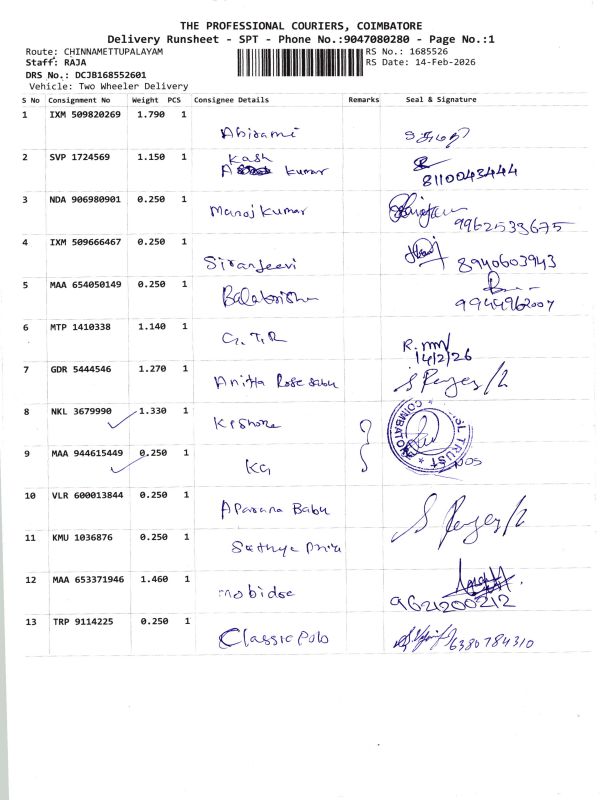 THE PROFESSIONAL COURIERS, COIMBATORE
Delivery Runsheet - SPT - Phone No.:9047080280 - Page No.:1
Route: CHINNAMETTUPALAYAM RS No.: 1685526
Staff: RAJA RS Date: 14-Feb-2026
DRS No.: DCJB168552601
Vehicle: Two Wheeler Delivery
S No Consignment No Weight PCS Consignee Details Remarks Seal & Signature
1 IXM 509820269 1.790 1
Abirami
2 SVP 1724569 1.150 1 Kash
kumar
8110043444
3 NDA 906980901 0.250 1
Manoj Kumar
9962533675
4 IXM 509666467 0.250 1
Siranjeevi 8940603943
5 MAA 654050149 0.250 1
Balakrishn 9944962007
6 MTP 1410338 1.140 1
G.T.R
14/2/26
7 GDR 5444546 1.270 1
Anitta Rose sabu
8 NKL 3679990 1.330 1
Kishore
COIMBATORE
TRUST
9 MAA 944615449 0.250 1
KG
10 VLR 600013844 0.250 1
Aparana Babu
11 KMU 1036876 0.250 1
Sathya Priya
12 MAA 653371946 1.460 1
mobidoc 9621200212
13 TRP 9114225 0.250 1
Classic Polo 6380784310